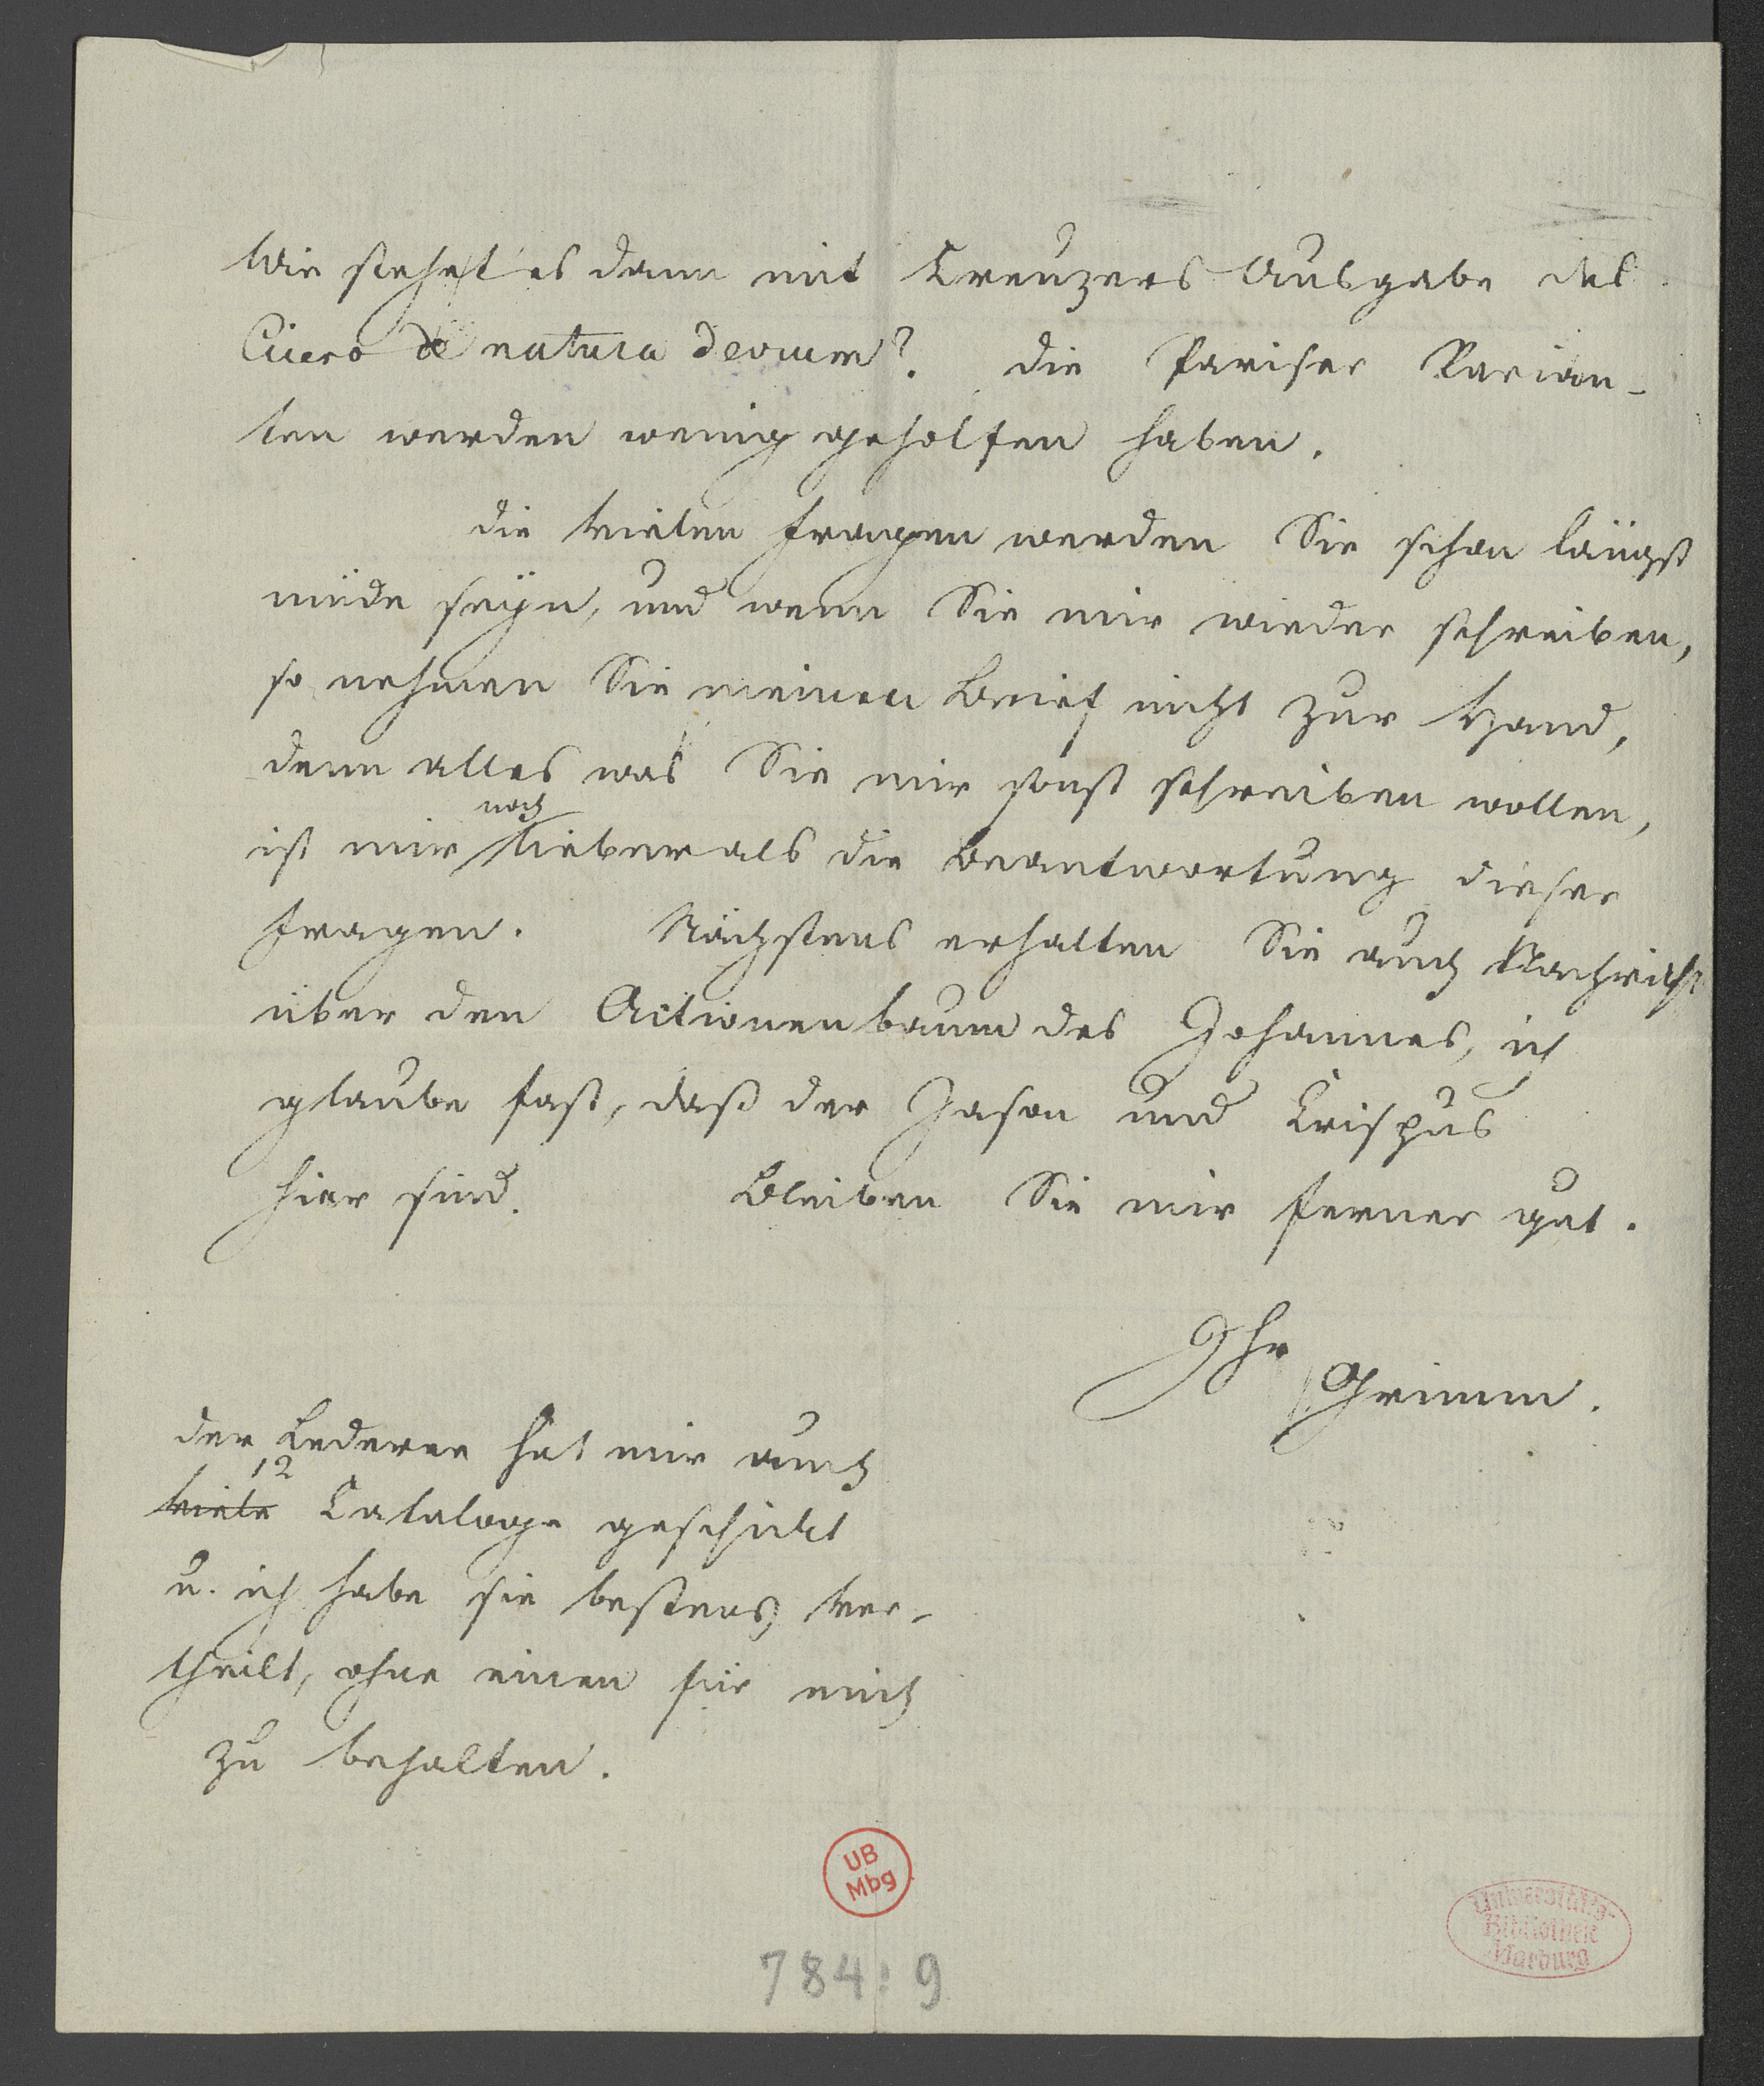 Wie stehet es dann mit Creuzers Ausgabe des
Cicero de natura deorum? die Pariser Varian-
ten werden wenig geholfen haben.
die vielen Fragen werden Sie schon längst
müde seyn, und wenn Sie mir wieder schreiben,
so nehmen Sie meinen Brief nicht zur Hand,
denn alles was Sie mir sonst schreiben wollen,
ist mir noch lieber als die Beantwortung dieser
Fragen. Nächstens erhalten Sie auch Nachricht
über den Actionenbaum des Johannes, ich
glaube fast, daß der Jason und Crispus
hier sind. Bleiben Sie mir ferner gut.
Ihr
Grimm.
der Lederer hat mir auch
12
viele Cataloge geschickt
u. ich habe sie bestens ver-
theilt, ohne einen für mich
zu behalten.
UB
Mbg
Universitäts-
Bibliothek
Marburg
784:9